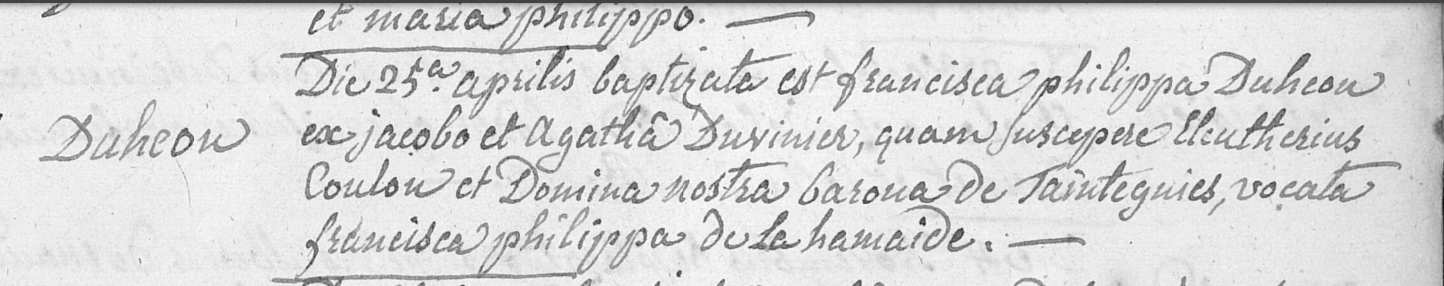 et maria philippo. —
Die 25.a aprilis baptizata est francisca philippa Duheou
Duheou
ex jacobo et Agathâ Duvinier, quam suscepere Eleutherius
Coulou et Domina nostra barona de Taintegnies, vocata
francisca philippa de la hamaide. —